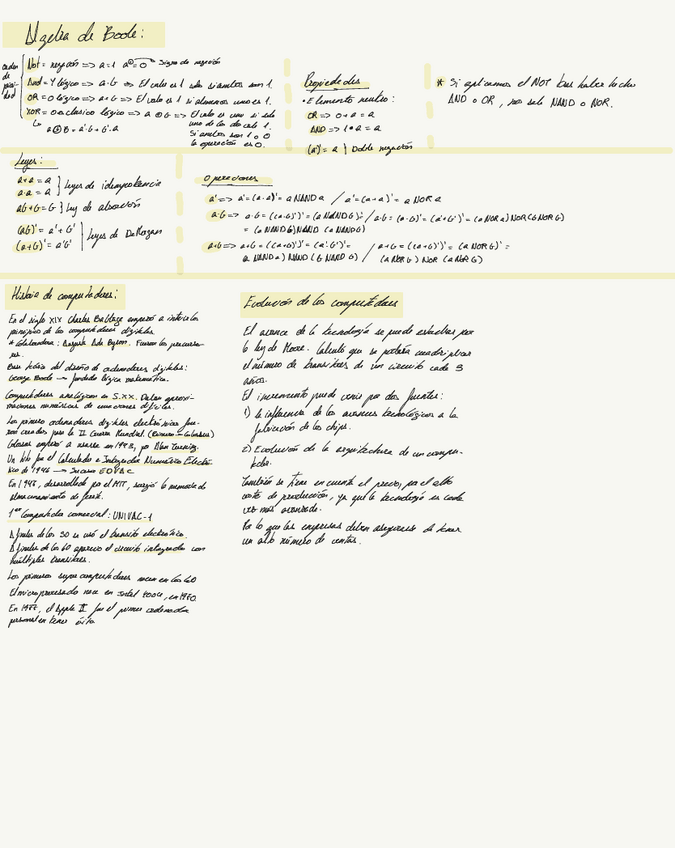 Algebra de Boole:
orden de prioridad
Not = negación => a=1 a'=0 Signo de negación
And = Y lógico => a·b => El valor es 1 solo si ambos son 1.
OR = O lógico => a+b => El valor es 1 si al menos uno es 1.
XOR = O exclusivo lógico => a⊕b => El valor es uno si solo
uno de los dos vale 1.
Si ambos son 1 o 0
la operación es 0.
↳ a⊕b = a'·b + b'·a
Propiedades
• Elemento neutro:
OR => 0+a = a
AND => 1·a = a
(a')' = a } Doble negación
* Si aplicamos el NOT tras haber hecho
AND o OR, nos sale NAND o NOR.
Leyes:
a+a = a
a·a = a } Leyes de idempotencia
ab+b = b } Ley de absorción
(ab)' = a'+b'
(a+b)' = a'b' } Leyes de DeMorgan
Operaciones
a' => a' = (a·a)' = a NAND a / a' = (a+a)' = a NOR a
a·b => a·b = ((a·b)')' = (a NAND b)' / a·b = (a·b)'' = (a'+b')' = (a NOR a) NOR (b NOR b)
= (a NAND b) NAND (a NAND b)
a+b => a+b = ((a+b)')' = (a'·b')' = / a+b = ((a+b)')' = (a NOR b)' =
(a NAND a) NAND (b NAND b) / (a NOR b) NOR (a NOR b)
Historia de computadores:
En el siglo XIX Charles Babbage empezó a introducir
principios de los computadores digitales.
* Colaboradora: Augusta Ada Byron. Fueron los precurso-
res.
Base teórica del diseño de ordenadores digitales:
George Boole → fundador lógica matemática.
Computadores analógicos en S.XX. Daban aproxi-
maciones numéricas de ecuaciones difíciles.
Los primeros ordenadores digitales electrónicos fue-
ron creados para la II Guerra Mundial.
Colossus empezó a usarse en 1943, por Alan Turning.
Un hito fue el Calculador e Integrador Numérico Electró-
nico de 1946 → Sucesor EDVAC
En 1948, desarrollado por el MIT, surgió la memoria de
almacenamiento de ferrita.
1er Computador comercial: UNIVAC-1
A finales de los 50 se usó el transistor electrónico.
A finales de los 60 apareció el circuito integrado con
múltiples transistores.
Los primeros supercomputadores nacen en los 60
El microprocesador nace en Intel 4004, en 1970.
En 1977, el Apple II fue el primer ordenador
personal en tener éxito
Evolución de los computadores
El avance de la tecnología se puede estudiar por
la ley de Moore. Calculó que se podría cuadruplicar
el número de transistores de un circuito cada 3
años.
El incremento puede venir por dos fuentes:
1) la influencia de los avances tecnológicos a la
fabricación de los chips.
2) Evolución de la arquitectura de un compu-
tador.
También se tiene en cuenta el precio, por el alto
coste de producción, ya que la tecnología es cada
vez más avanzada.
Por lo que las empresas deben asegurarse de tener
un alto número de ventas.